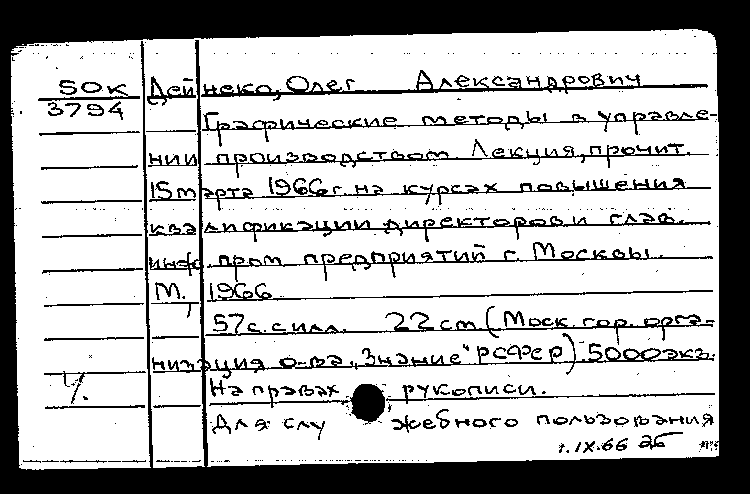 50к Дейнеко, Олег Александрович
3794
Графические методы в управле-
нии производством. Лекция, прочит.
15 марта 1966 г. на курсах повышения
квалификации директоров и глав.
инж. пром. предприятий г. Москвы.
М., 1966
57 с. с илл. 22 см (Моск. гор. орга-
низация о-ва "Знание" РСФСР). 5000 экз.
На правах рукописи.
Для служебного пользования
1.IX.66